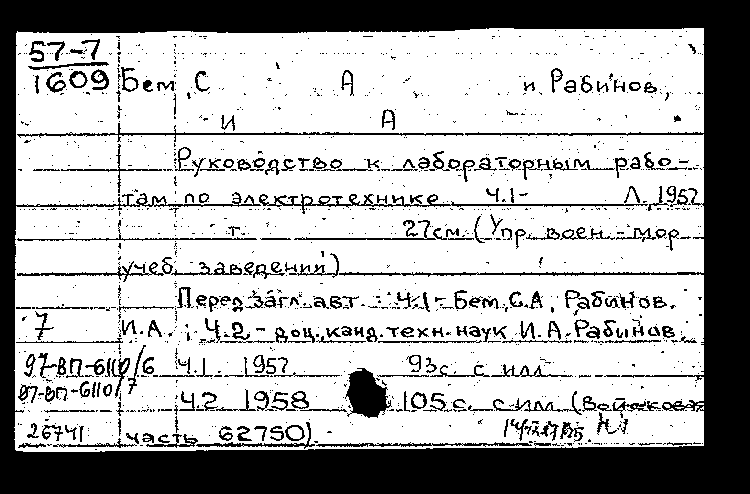 57-7
1609 Бем, С А и Рабинов,
И А
Руководство к лабораторным рабо-
там по электротехнике. Ч.1- Л., 1957
т. 27см. (Упр. воен.-мор
учеб. заведений)
Перед загл. авт. Ч.1- Бем, С.А., Рабинов.
7 И.А.; Ч.2- доц., канд. техн. наук И.А. Рабинов.
97-ВП-6110/6 Ч.1. 1957. 93с. с илл
97-ВП-6110/7
Ч.2 1958 105с. с илл (Войсковая
26741 часть 62750).